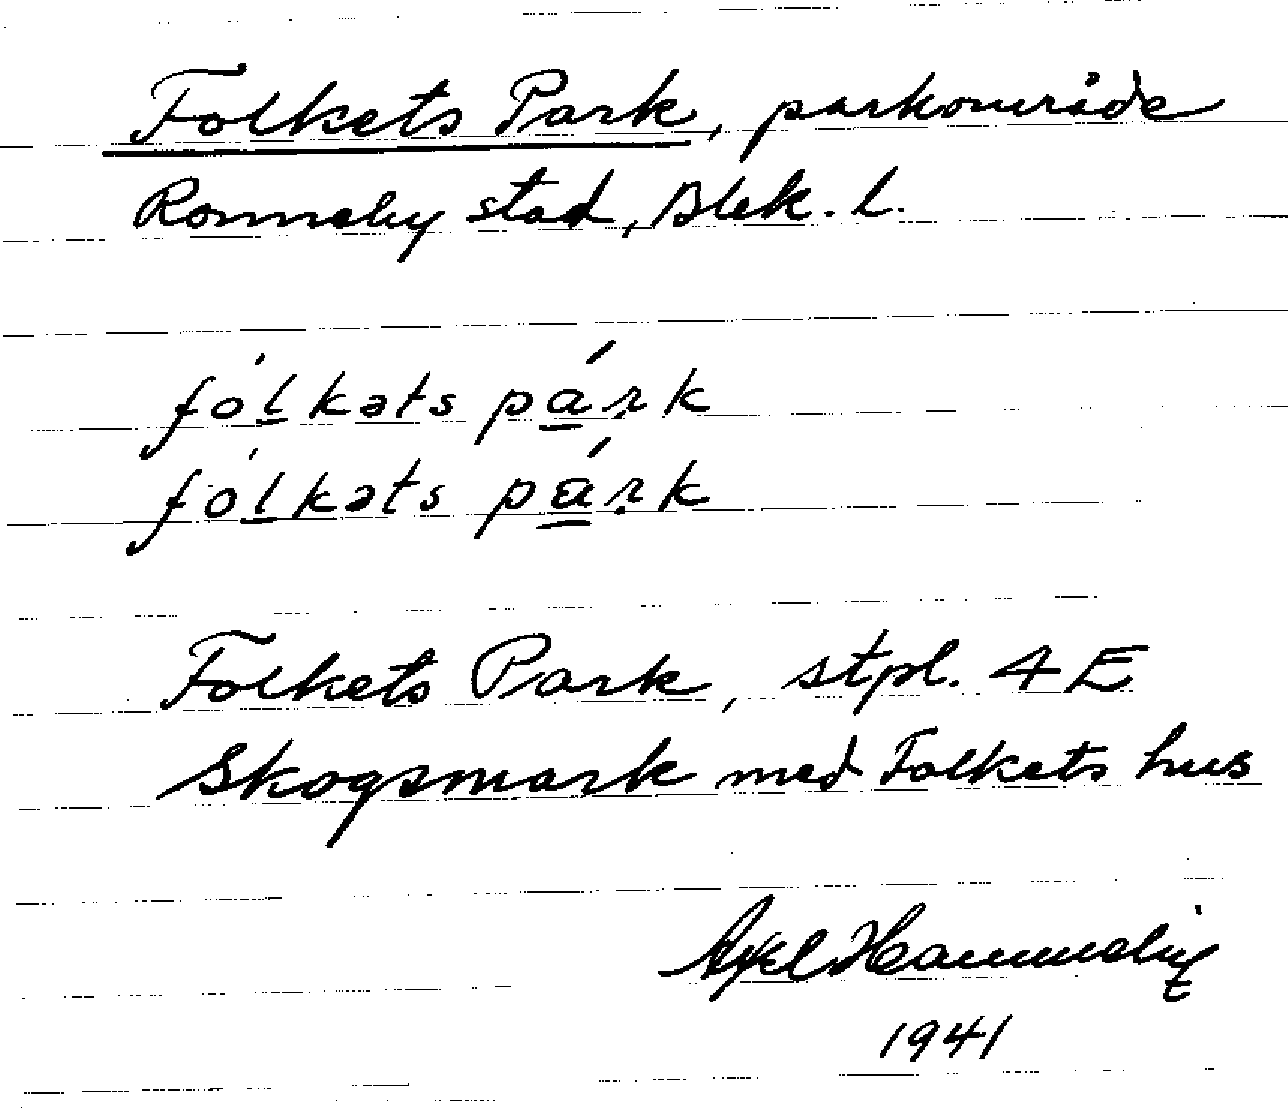 Folkets Park, parkområde
Ronneby stad, Blek. l.
fólkəts párk
fólkəts párk
Folkets Park, stpl. 4 E
Skogsmark med Folkets hus
Axel
1941